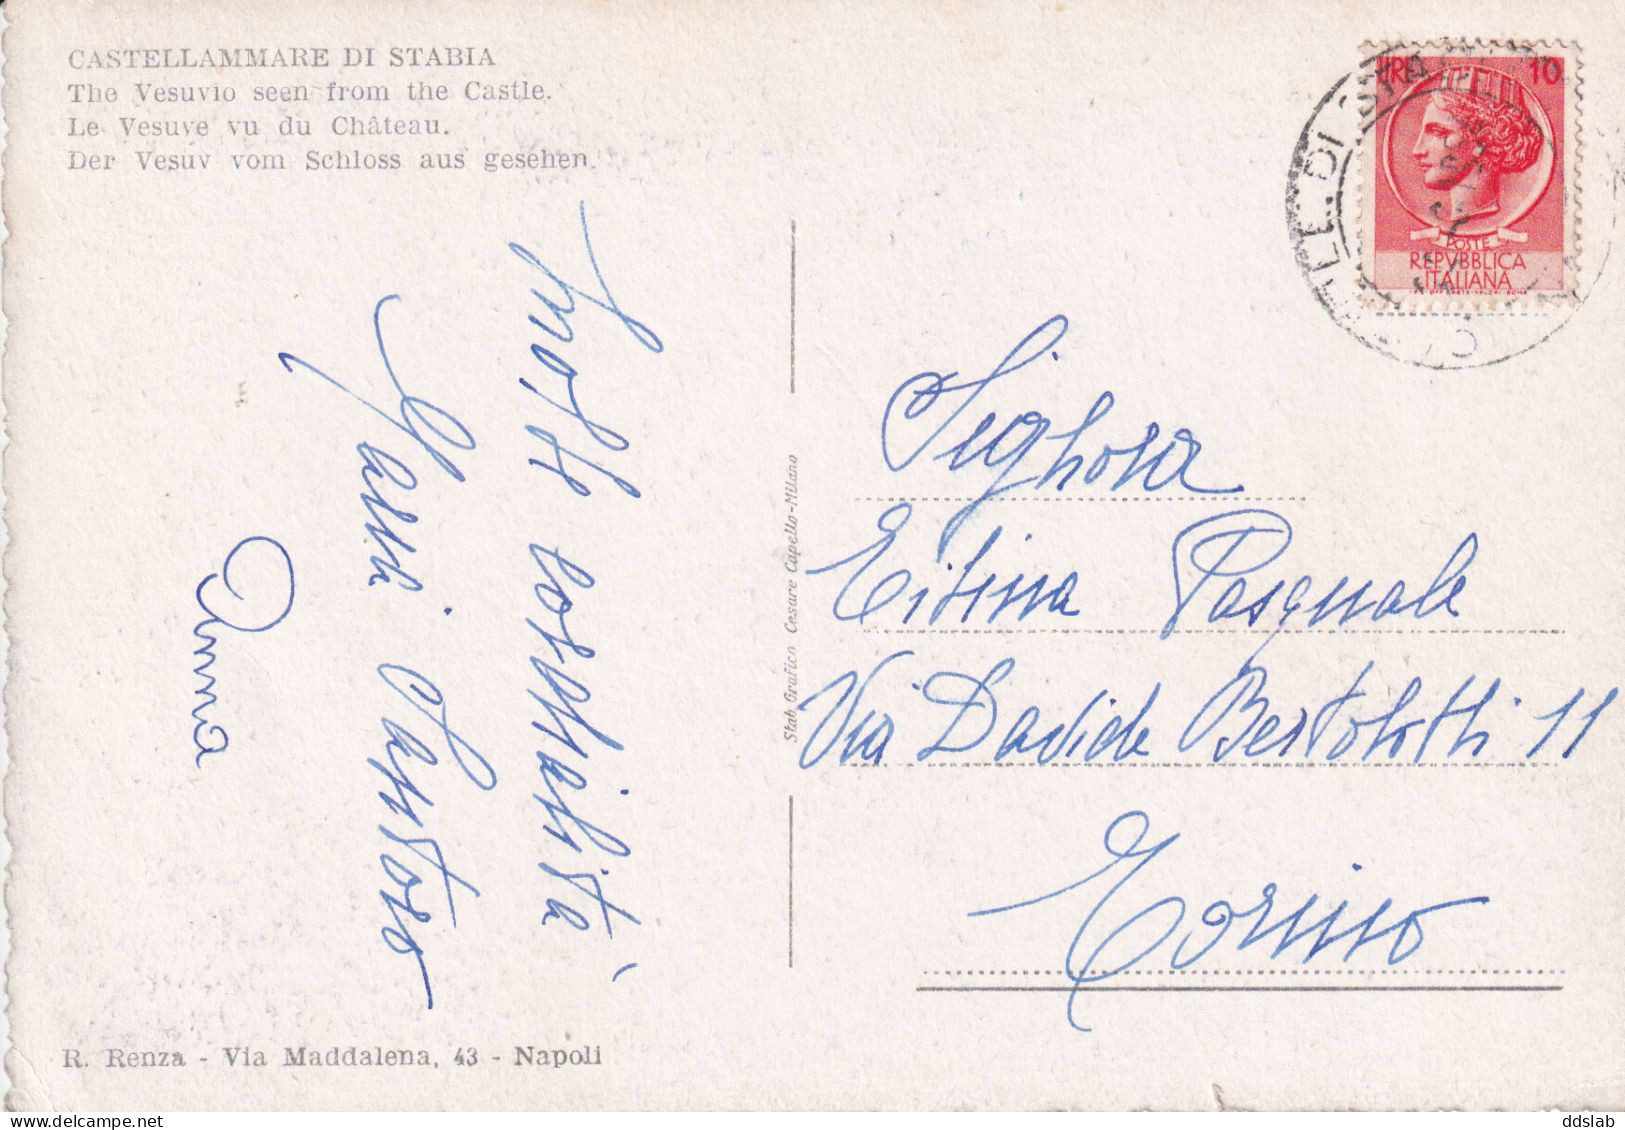 CASTELLAMMARE DI STABIA
The Vesuvio seen from the Castle.
Le Vesuve vu du Château.
Der Vesuv vom Schloss aus gesehen.
Gianni Santoro
Anna
R. Renza - Via Maddalena, 43 - Napoli
Stab. Grafico Cesare Capello - Milano
LIRE 10
POSTE
REPVBBLICA
ITALIANA
DI STA
Signora
Pasquale
Via Davide Bertolotti 11
Torino
ddslab